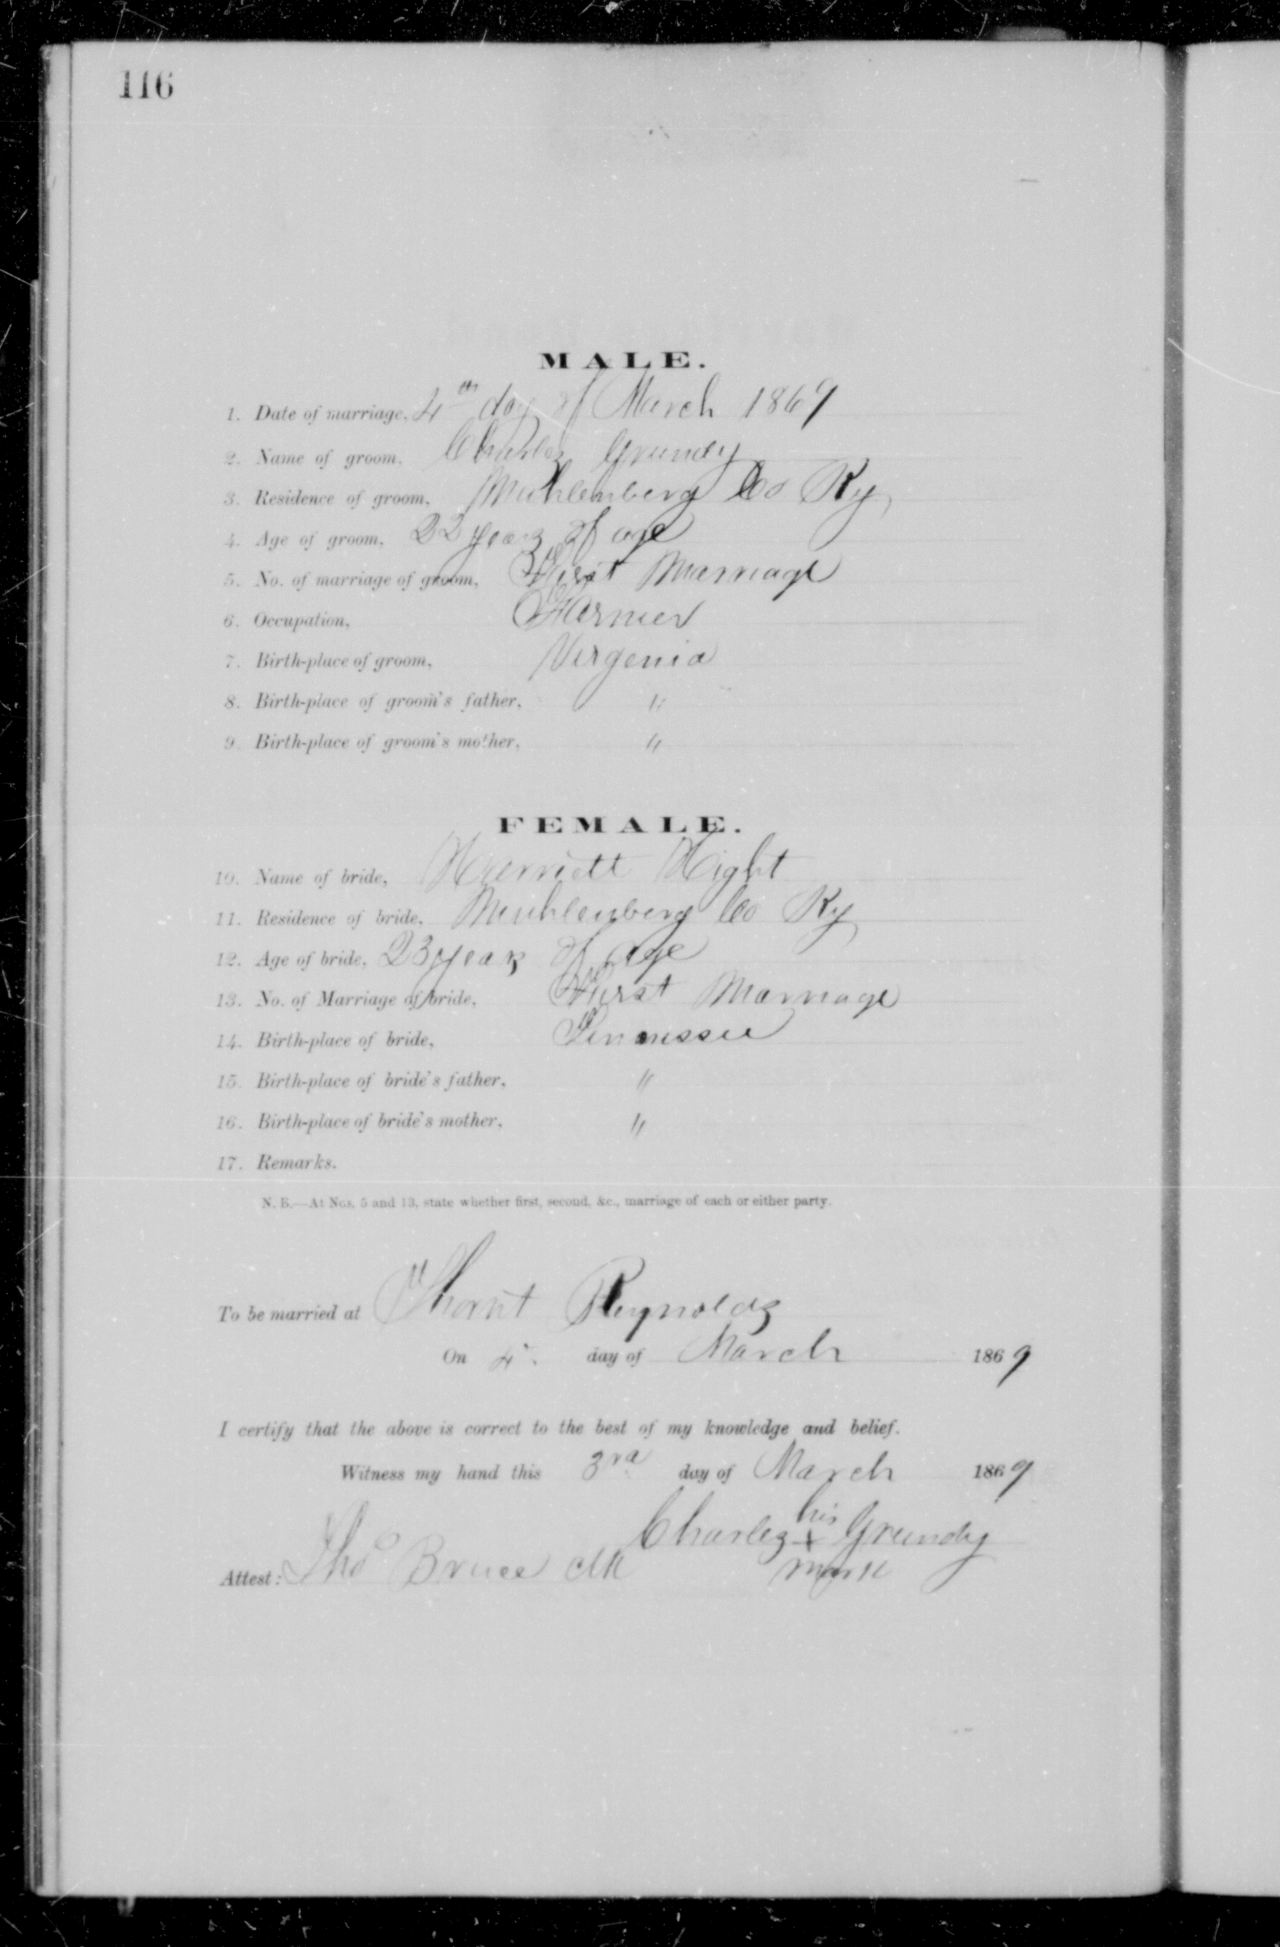 116
MALE.
1. Date of marriage, 4th day of March 1869
2. Name of groom, Charles Grundy
3. Residence of groom, Muhlenberg Co Ky
4. Age of groom, 22 years of age
5. No. of marriage of groom, First Marriage
6. Occupation, Farmer
7. Birth-place of groom, Virgenia
8. Birth-place of groom's father, "
9. Birth-place of groom's mother, "
FEMALE.
10. Name of bride, Harriett Hight
11. Residence of bride, Muhlenberg Co Ky
12. Age of bride, 23 years of age
13. No. of Marriage of bride, First Marriage
14. Birth-place of bride, Tennessee
15. Birth-place of bride's father, "
16. Birth-place of bride's mother, "
17. Remarks.
N. B.—At Nos. 5 and 13, state whether first, second, &c., marriage of each or either party.
To be married at Thornt Reynolds
On 4th day of March 1869
I certify that the above is correct to the best of my knowledge and belief.
Witness my hand this 3rd day of March 1869
his
Charles + Grundy
mark
Attest: Thos Bruce clk